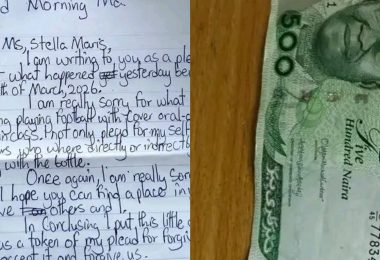 d Morning Ms.
Ms, Stella Maris,
I am writing to you as a ple
what happened yesterday be
of March, 2026.
I am really sorry for what
playing football with Cover oral-o
class. Not only plead for my self
rs who where directly or indirect
with the bottle.
Once again, I am really sor
I hope you can find a place in
ve others and I.
In Concluding I put this little a
us a token of my plead for forgiv
accept it and forgive us.
500
Five
Hundred Naira